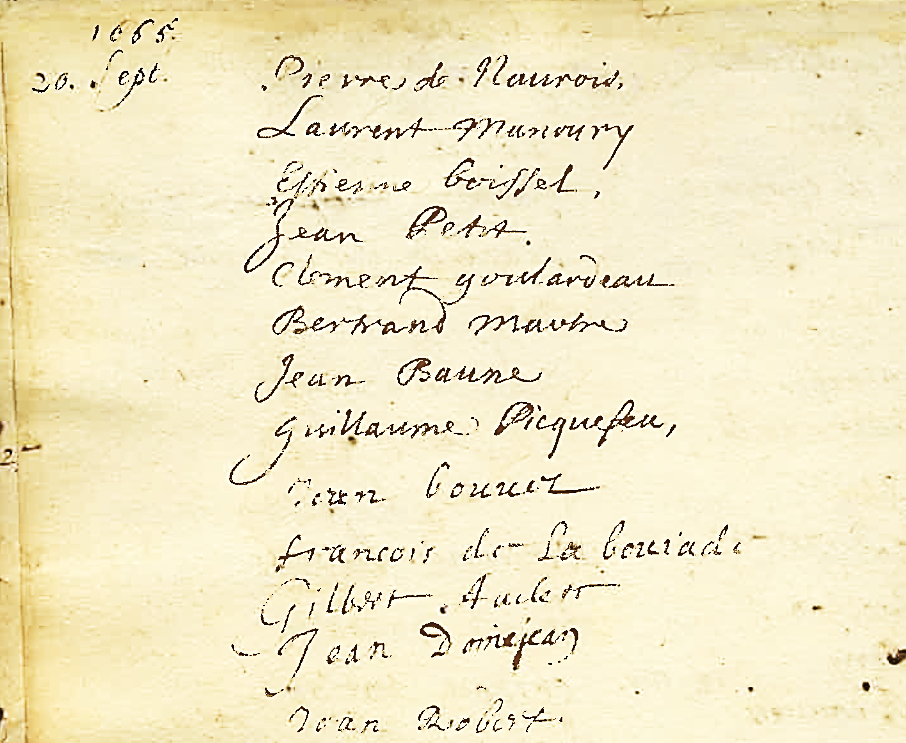 1665.
20. Sept.
Pierre de Naurois.
Laurent Manoury
Estienne boissel,
Jean Petit.
Clement goulardeau
Bertrand Mautre
Jean Baune
Guillaume Picquefeu,
Jean bouuet
francois de La bouriade
Gilbert Aubert
Jean Domejean
Jean Robert.
2